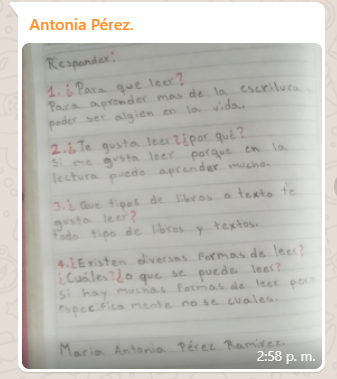 Antonia Pérez.
Responder:
1. ¿Para que leer?
Para aprender mas de la escritura,
poder ser algien en la vida.
2. ¿Te gusta leer? ¿por qué?
Si me gusta leer porque en la
lectura puedo aprender mucho.
3. ¿Que tipos de libros o texto te
gusta leer?
todo tipo de libros y textos.
4. ¿Existen diversas formas de leer?
¿Cuáles? ¿o que se puede leer?
si hay muchas formas de leer pero
especifica mente no se cuales.
Maria Antonia Pérez Ramirez.
2:58 p. m.